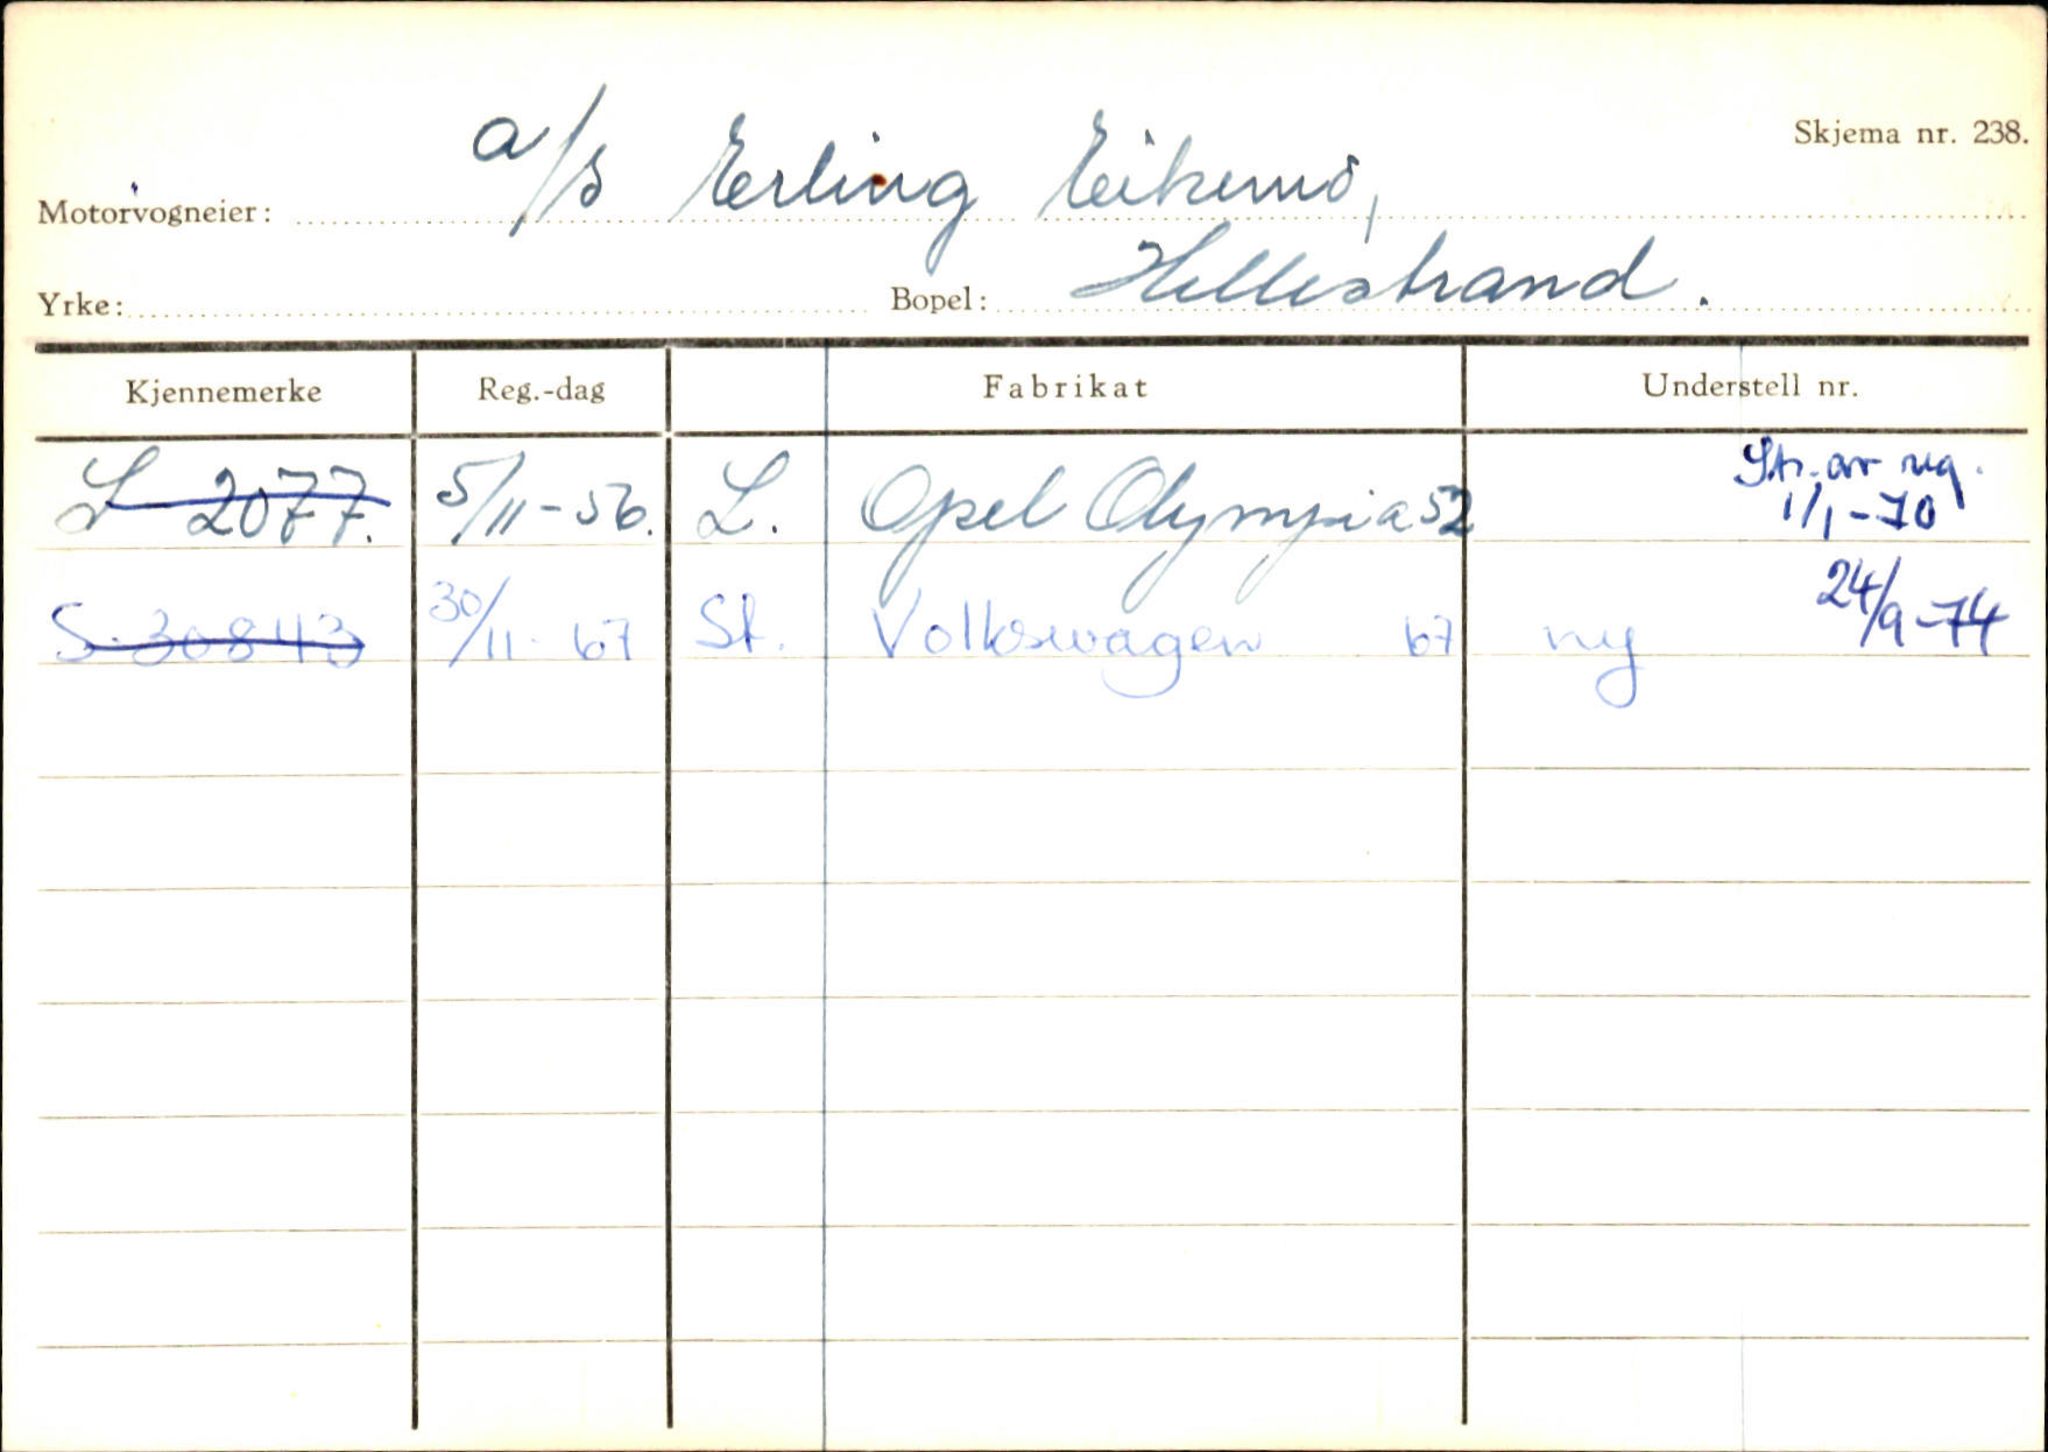 Skjema nr. 238.
Motorvogneier: a/s Erling Eikemo,
Yrke: Bopel: Hellestrand.
Kjennemerke Reg.-dag Fabrikat Understell nr.
S 2077. 5/11-56. L. Opel Olympia 52 Str. av reg. 1/1-70
S-30843 30/11-67 St. Volkswagen 67 ny 24/9-74